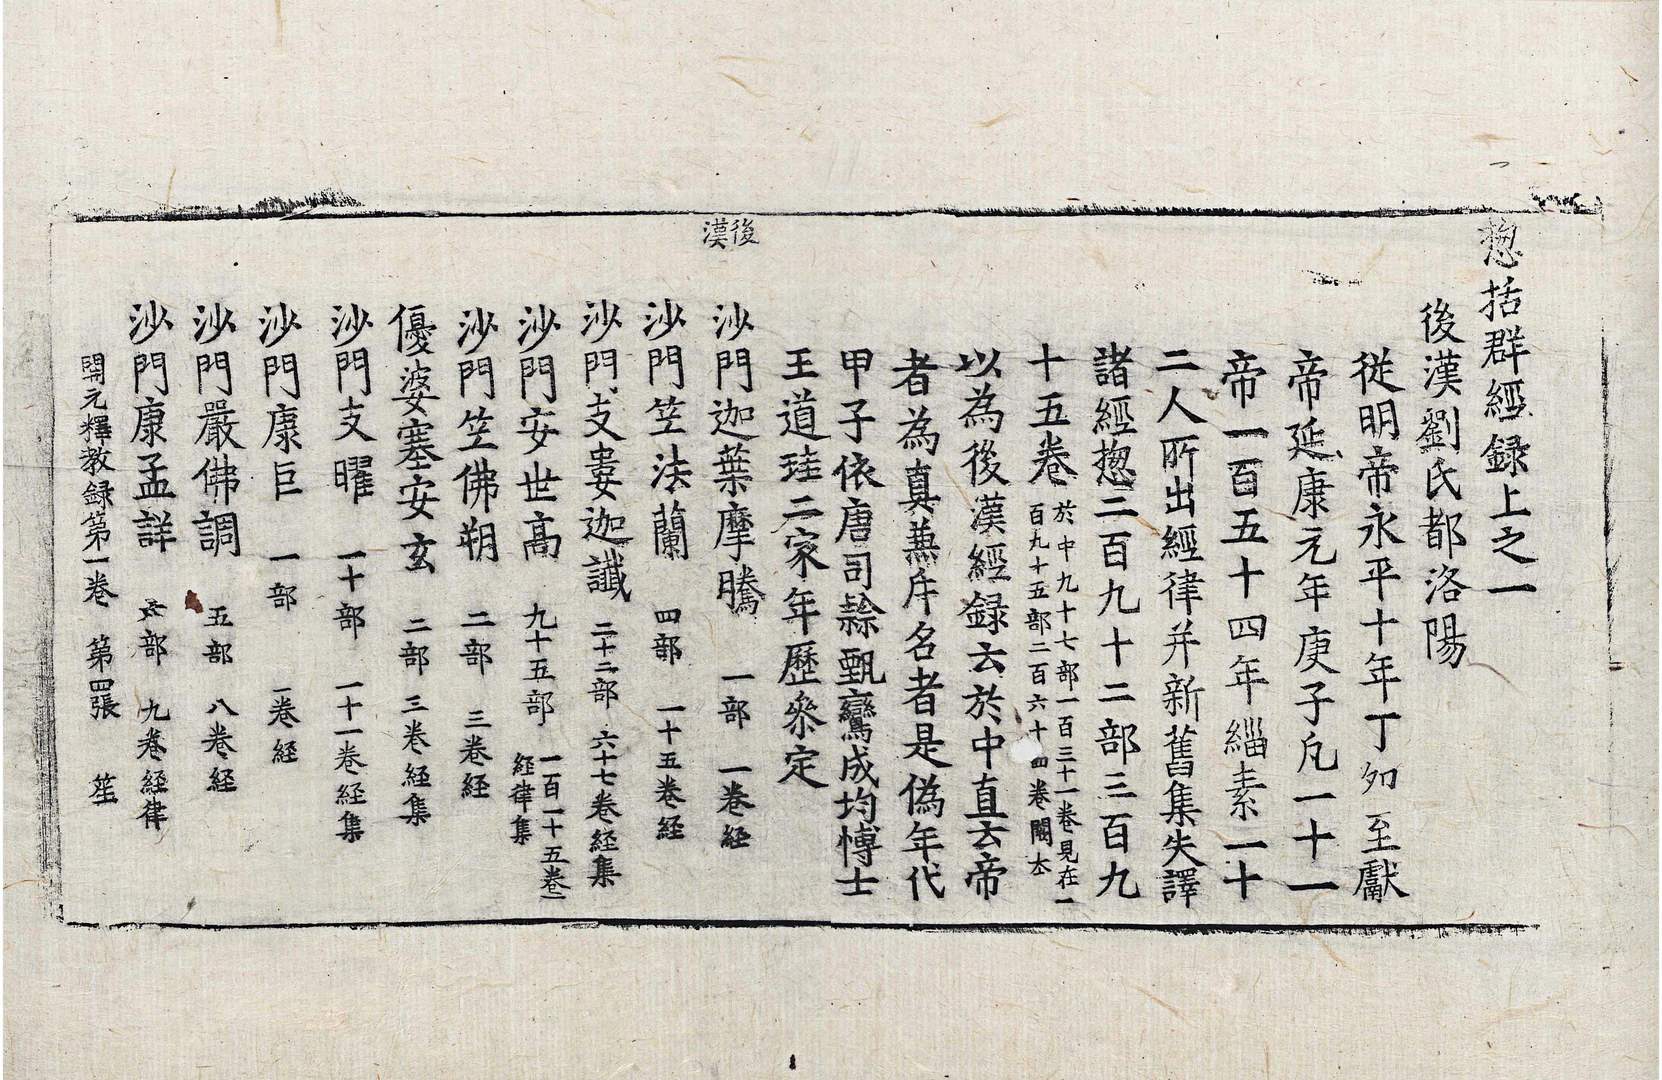 揔括群經録上之一
後漢劉氏都洛陽
從明帝永平十年丁夘至獻
帝延康元年庚子凡一十一
帝一百五十四年緇素一十
二人所出經律并新舊集失譯
諸經揔二百九十二部三百九
十五卷 於中九十七部一百三十一卷見在一
百九十五部二百六十四卷闕夲
以為後漢經録云於中直云帝
者為真兼斥名者是偽年代
甲子依唐司𨽻甄鸞成均愽士
王道珪二家年歷叅定
後漢
沙門迦葉摩騰 一部 一卷経
沙門竺法蘭 四部 一十五卷経
沙門支婁迦讖 二十三部 六十七卷経集
沙門安世高 九十五部 一百一十五卷
経律集
沙門竺佛朔 二部 三卷経
優婆塞安玄 二部 三卷経集
沙門支曜 一十部 一十一卷経集
沙門康巨 一部 一卷経
沙門嚴佛調 五部 八卷経
沙門康孟詳 六部 九卷経律
開元釋教録第一卷 第四張 笙